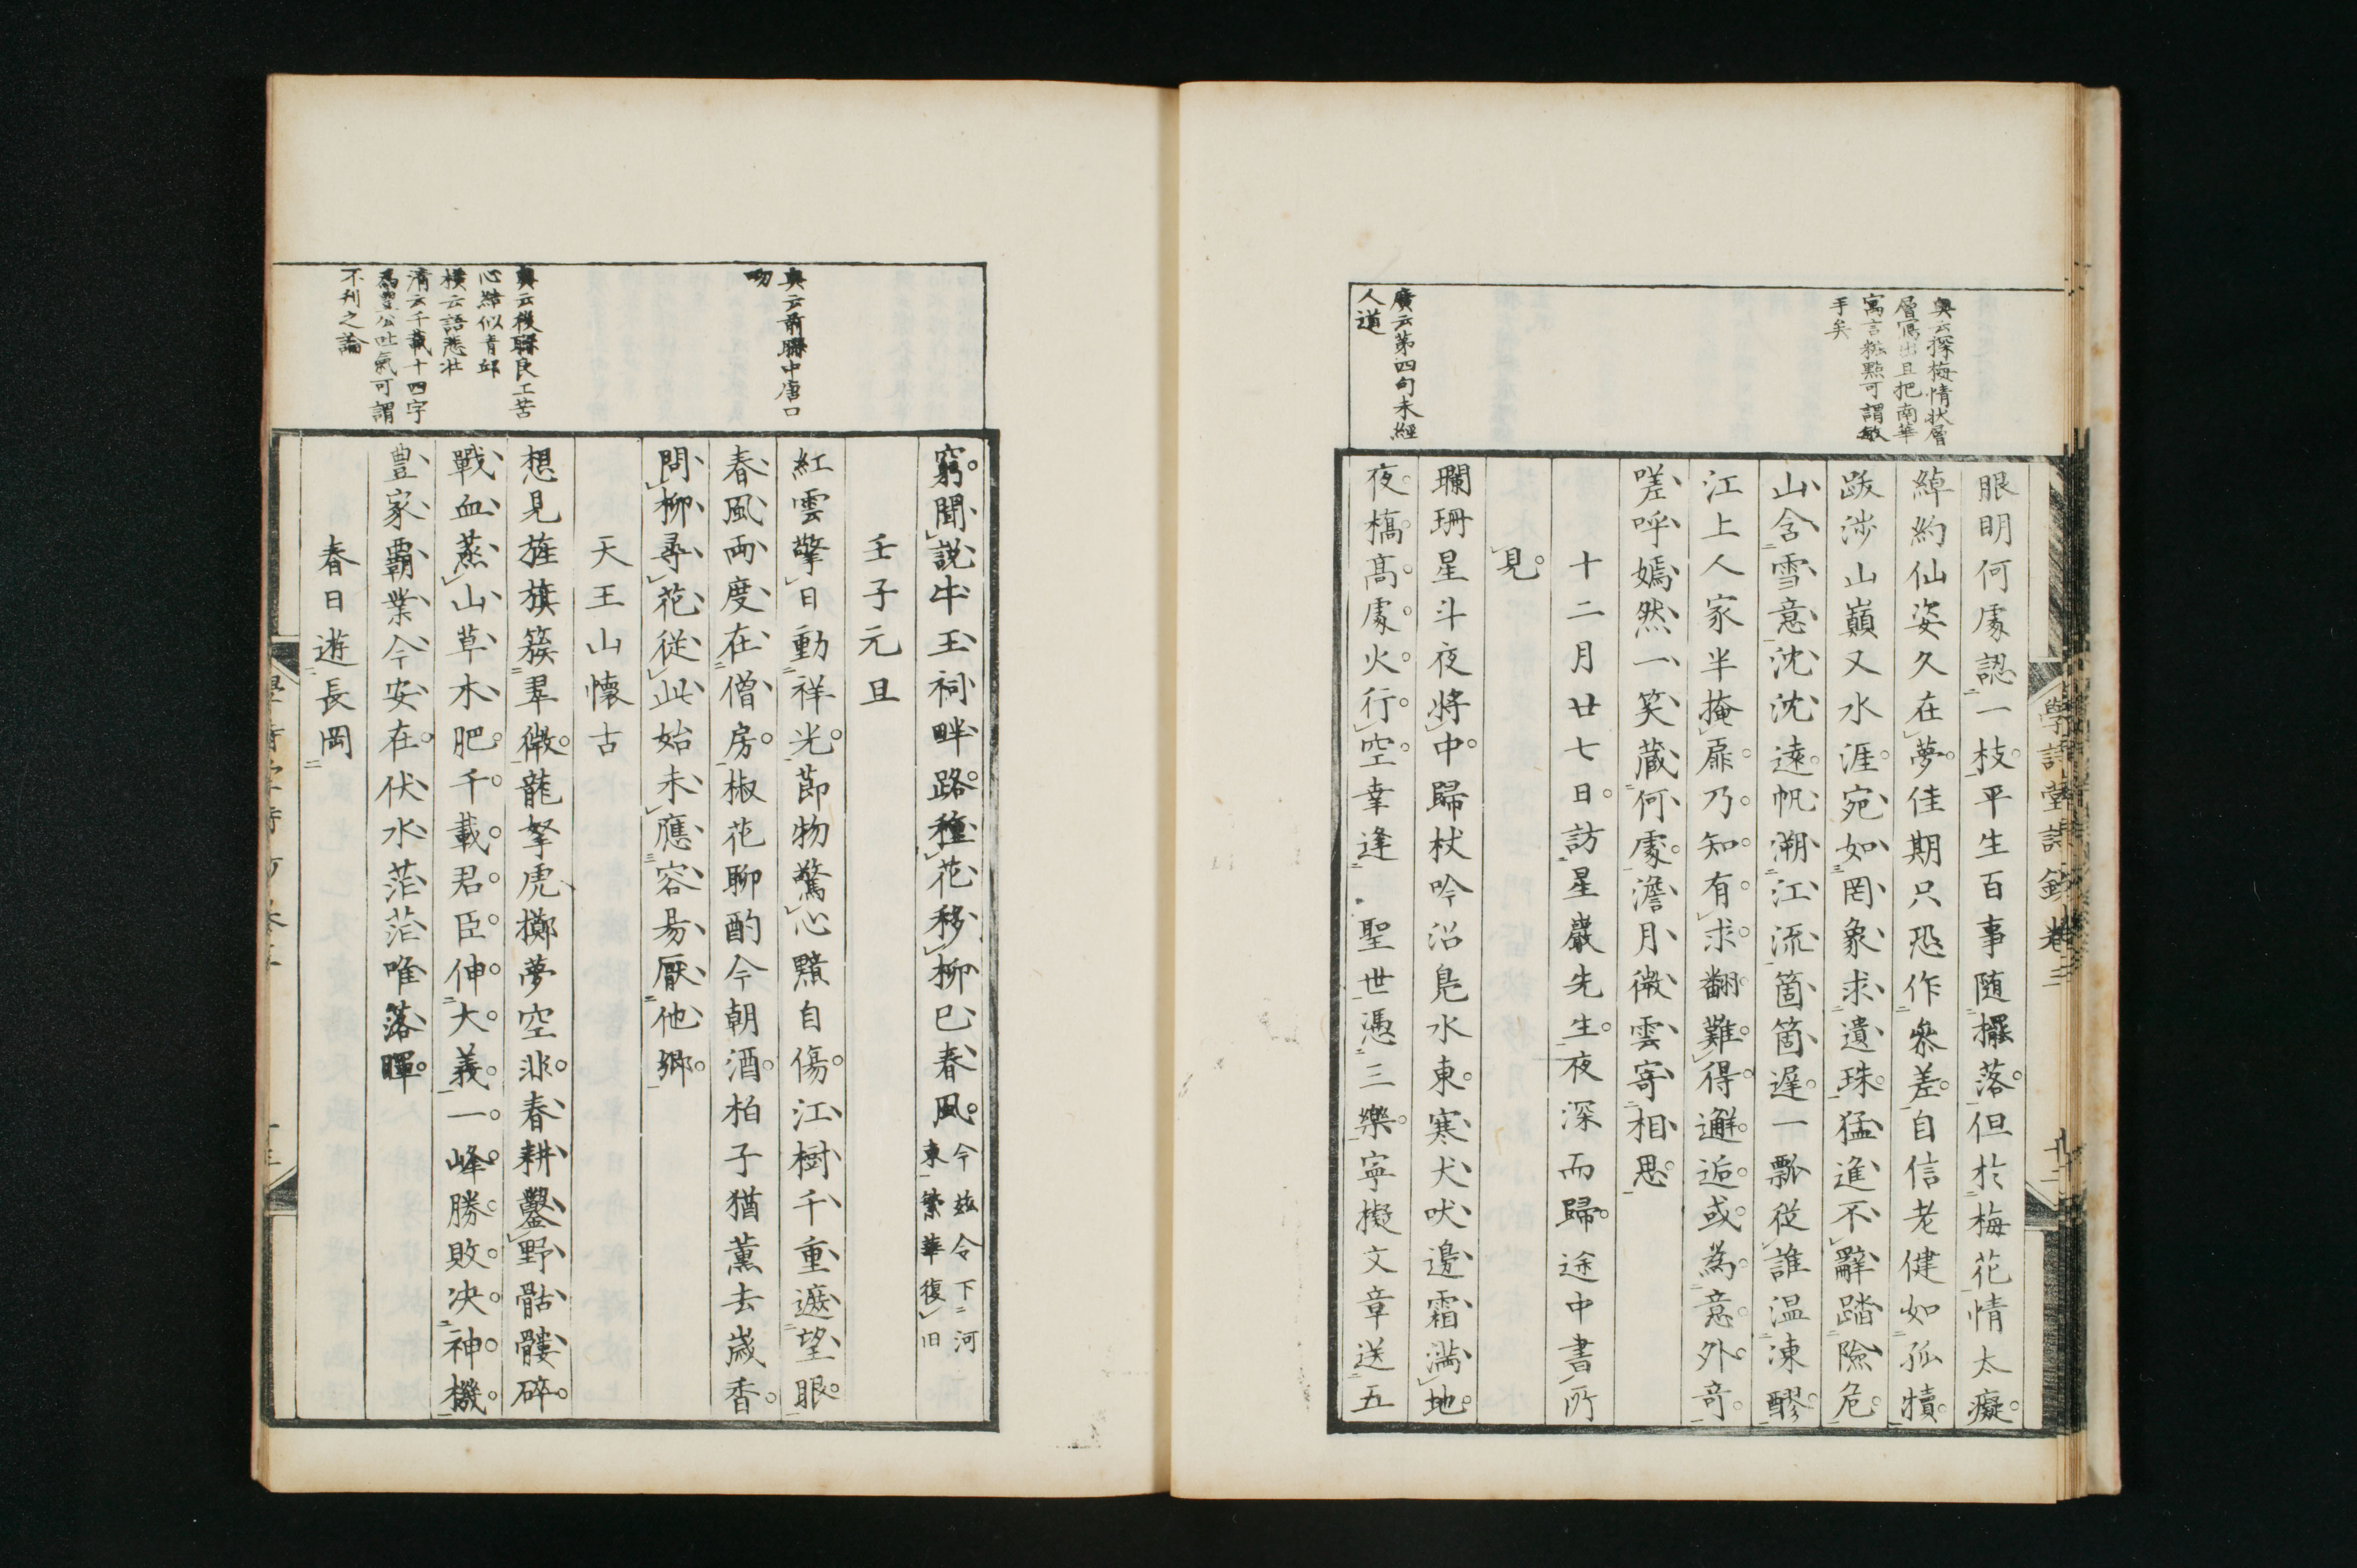 奥云探梅情状層
層寫出且把南華
寓言粧點可謂敏
手矣
廣云第四句未經
人道
學詩堂詩鈔卷二
眼明何處認一枝平生百事随擺落但於梅花情太癡
綽約仙姿久在夢佳期只恐作参差自信老健如孤犢
跋渉山巔又水涯宛如罔象求遺珠猛進不辭踏險危
山含雪意沈沈遠帆溯江流箇箇遲一瓢從誰温凍醪
江上人家半掩扉乃知有求翻難得邂逅或為意外奇
嗟呼嫣然一笑蔵何處澹月微雲寄相思
十二月廿七日訪星巖先生夜深而歸途中書所
見
瓓珊星斗夜將中歸杖吟沿鳧水東寒犬吠邊霜満地
夜槁髙處火行空幸逢聖世憑三樂寧擬文章送五
窮聞説牛王祠畔路種花移柳已春風今玆令下河
東繁華復旧
壬子元旦
紅雲擎日動祥光莭物驚心黯自傷江樹千重遮望眼
春風兩度在僧房椒花聊酌今朝酒柏子猶薫去歳香
問柳尋花從此始未應容易厭他鄉
天王山懷古
想見旌旗簇翠微龍拏虎擲夢空非春耕鑿野骷髏碎
戰血蒸山草木肥千載君臣伸大義一峰勝敗决神機
豊家覇業今安在伏水茫茫唯落暉
春日遊長岡
奥云前聯中唐口
吻
奥云後聯良工苦
心結似青邱
横云語悲壮
濟云千載十四字
為豊公吐氣可謂
不刊之論